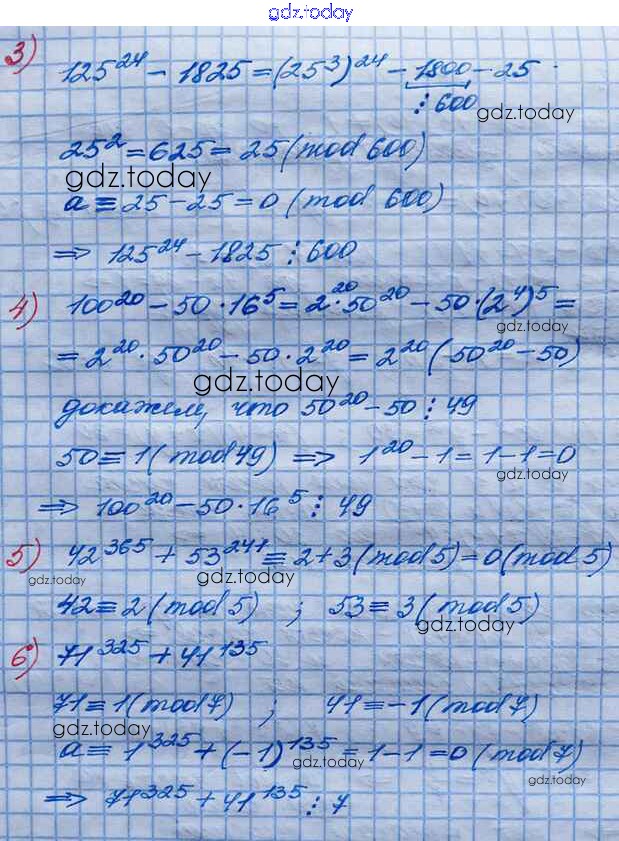 gdz.today
3) 125²⁴ – 1825 = (25³)²⁴ – 1800 – 25
⋮ 600 gdz.today
25² = 625 = 25 (mod 600)
gdz.today
a ≡ 25 – 25 = 0 (mod 600)
⇒ 125²⁴ – 1825 ⋮ 600
4) 100²⁰ – 50 · 16⁵ = 2²⁰ · 50²⁰ – 50 · (2⁴)⁵ =
gdz.today
= 2²⁰ · 50²⁰ – 50 · 2²⁰ = 2²⁰ (50²⁰ – 50)
gdz.today
докажем, что 50²⁰ – 50 ⋮ 49
50 ≡ 1 (mod 49) ⇒ 1²⁰ – 1 = 1 – 1 = 0
gdz.today
⇒ 100²⁰ – 50 · 16⁵ ⋮ 49
5) 42³⁶⁵ + 53²⁴¹ ≡ 2 + 3 (mod 5) = 0 (mod 5)
gdz.today gdz.today
42 ≡ 2 (mod 5) ; 53 ≡ 3 (mod 5)
gdz.today
6) 71³²⁵ + 41¹³⁵
71 ≡ 1 (mod 7) ; 41 ≡ –1 (mod 7)
gdz.today
a ≡ 1³²⁵ + (–1)¹³⁵ = 1 – 1 = 0 (mod 7)
gdz.today
gdz.today
⇒ 71³²⁵ + 41¹³⁵ ⋮ 7